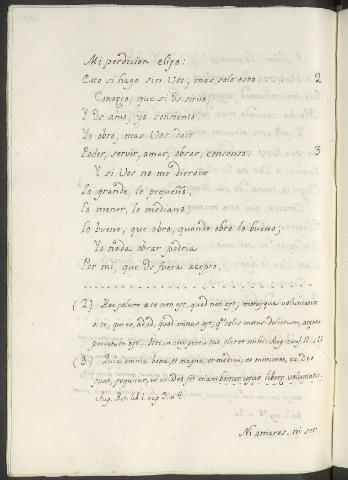 Mi perdicion elijo:
Esto si hago sin Vos; mas solo esto. 2
Conozco, que si os sirvo,
Y os amo, yo consiento,
Yo obro, mas Vos dais
Poder, servir, amar, obrar, consenso. 3
Y si Vos no me dierais
Lo grande, lo pequeño,
Lo menor, lo mediano,
Lo bueno, que obro, quando obro lo bueno,
Yo nada obrar podria
Por mi, que de fuera acepto,
(2) Hoc solum a te non est, quod non est; motusque voluntatis
a te, qui es, ad id, quod minus est, quia talis motus delictum, atque
peccatum est. Aug. conf. 12. c. 11
(3) Quia omnia bona, et magna, et media, et minima, ex Deo
sunt, sequitur, ut ex Deo sit etiam bonus usus liberae voluntatis.
Aug. Ret. lib 1. cap 9. n 4.
Ni amaros, ni ser